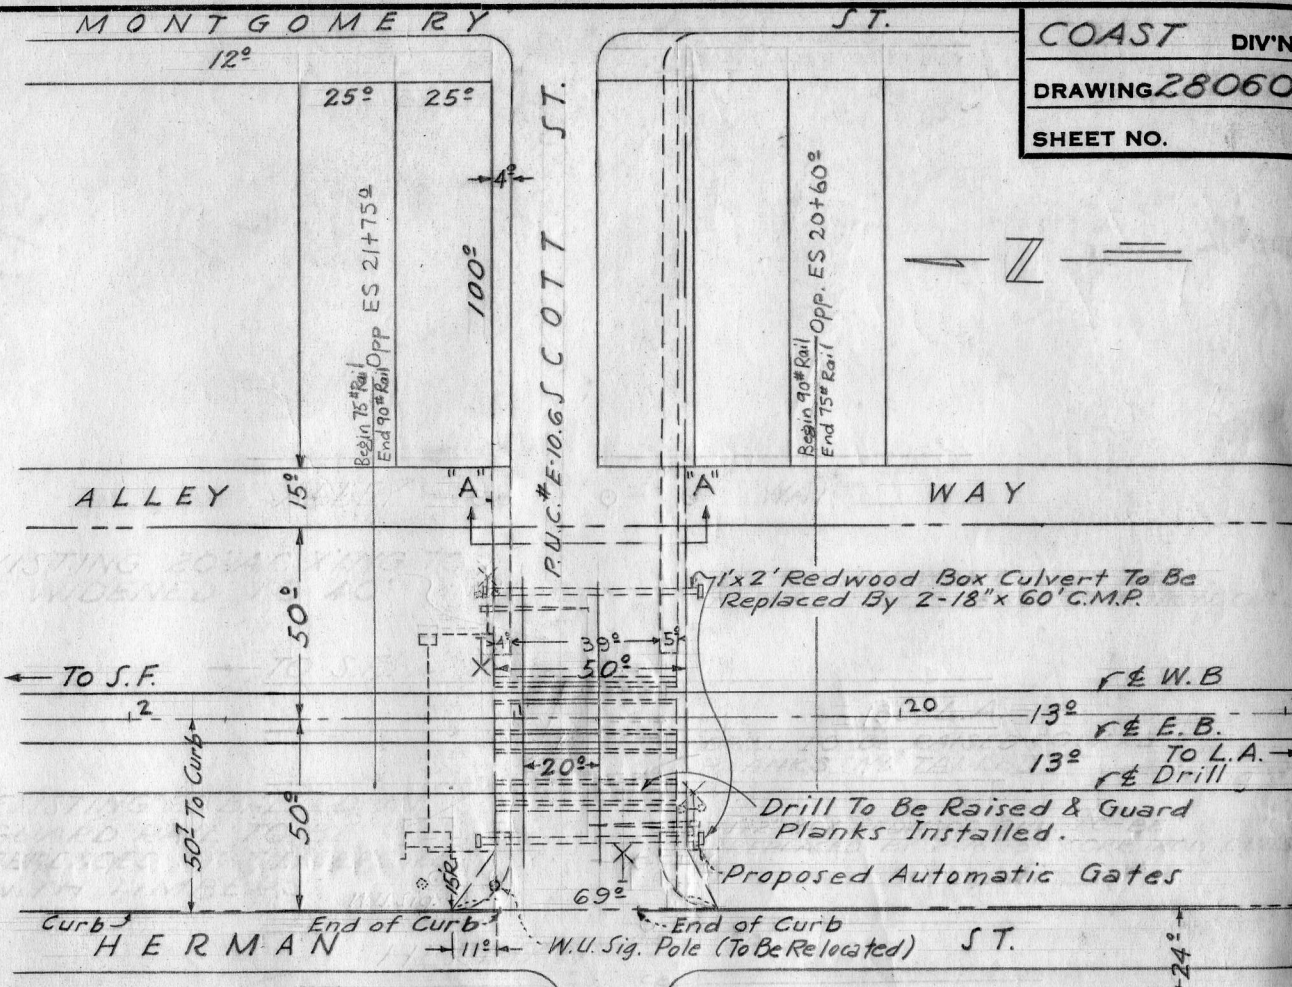 MONTGOMERY ST.
COAST DIV'N
DRAWING 28060
SHEET NO.
12º
25º 25º
4º
100º
SCOTT ST.
P.U.C. # E-10.6
Begin 75# Rail
End 90# Rail
Opp ES 21+75º
Begin 90# Rail
End 75# Rail
Opp. ES 20+60º
Z
ALLEY WAY
15º
"A" "A"
1'x2' Redwood Box Culvert To Be
Replaced By 2-18"x 60' C.M.P.
50º
4º 39º 5º
50º
TO S.F.
₵ W.B
2
20
13º
₵ E.B.
13º
To L.A.
₵ Drill
20º
50º
50.7 To Curb
Drill To Be Raised & Guard
Planks Installed.
Proposed Automatic Gates
15'R.
69º
Curb
End of Curb
End of Curb
HERMAN ST.
11º
W.U. Sig. Pole (To Be Relocated)
24º